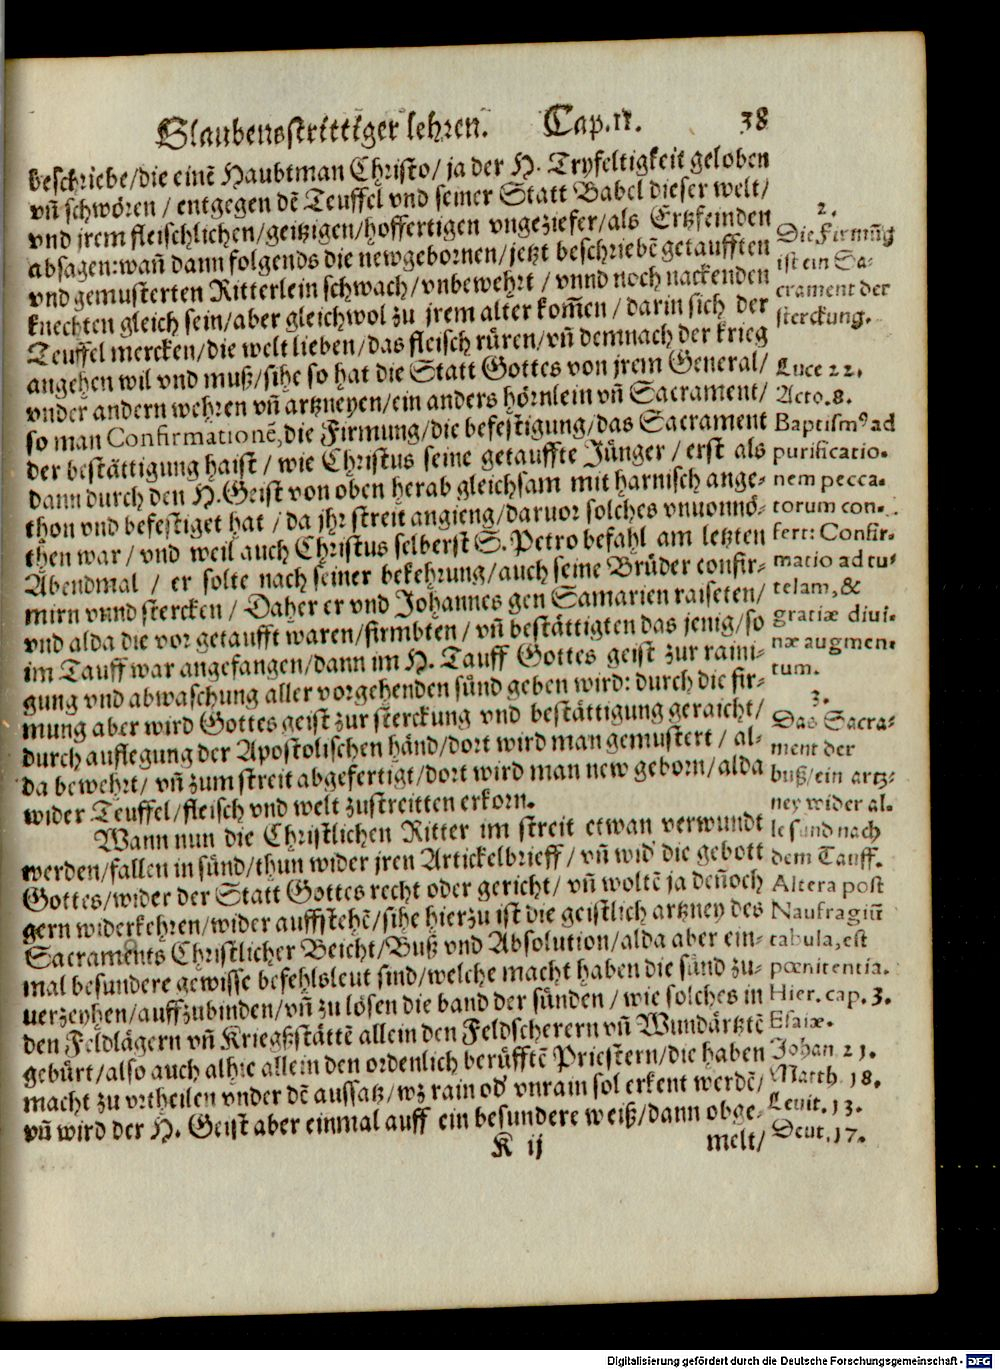 Glaubensstrittiger lehren. Cap. 11. 38
beschriebe/die einē Haubtman Christo/ ja der H. Tryfeltigkeit geloben
vñ schwören / entgegen dē Teuffel vnd seiner Statt Babel dieser welt/
vnd jrem fleischlichen/geitzigen/hoffertigen vngeziefer/als Ertzfeinden
absagen: wañ dann folgends die newgebornen/jetzt beschriebē getaufften
vnd gemusterten Ritterlein schwach/vnbewehrt / vnnd noch nackenden
knechten gleich sein/aber gleichwol zu jrem alter kom̃en / darin sich der
Teuffel mercken/die welt lieben/das fleisch rüren/vñ demnach der krieg
angehen wil vnd muß/sihe so hat die Statt Gottes von jrem General/
vnder andern wehren vñ artzneyen/ein anders hörnlein vñ Sacrament/
so man Confirmationē, die Firmung/die befestigung/das Sacrament
der bestättigung haist / wie Christus seine getauffte Jünger / erst als
dann durch den H. Geist von oben herab gleichsam mit harnisch ange-
thon vnd befestiget hat / da jhr streit angieng/daruor solches vnuonnö-
then war / vnd weil auch Christus selberst S. Petro befahl am letzten
Abendmal / er solte nach seiner bekehrung/auch seine Brüder confir-
mirn vnnd stercken / Daher er vnd Johannes gen Samarien raiseten/
vnd alda die vor getaufft waren/firmbten / vñ bestättigten das jenig/so
im Tauff war angefangen/dann im H. Tauff Gottes geist zur raini-
gung vnd abwaschung aller vorgehenden sünd geben wird: durch die fir-
mung aber wird Gottes geist zur sterckung vnd bestättigung geraicht/
durch auflegung der Apostolischen händ/dort wird man gemustert / al-
da bewehrt/ vñ zum streit abgefertigt/dort wird man new geborn/alda
wider Teuffel/fleisch vnd welt zustreitten erkorn.
Wann nun die Christlichen Ritter im streit etwan verwundt
werden/fallen in sünd/thun wider jren Artickelbrieff / vñ wid' die gebott
Gottes/wider der Statt Gottes recht oder gericht/ vñ woltē ja deñoch
gern widerkehren/wider auffstehē/sihe hierzu ist die geistlich artzney des
Sacraments Christlicher Beicht/Buß vnd Absolution/alda aber ein-
mal besundere gewisse befehlsleut sind/welche macht haben die sünd zu-
uerzeyhen/auffzubinden/vñ zu lösen die band der sünden / wie solches in
den Feldlägern vñ Kriegßstättē allein den Feldscherern vñ Wundärtztē
gebürt/also auch alhie allein den ordenlich berüfftē Priestern/die haben
macht zu vrtheilen vnder dē aussatz/wz rain od' vnrain sol erkent werdē/
vñ wird der H. Geist aber einmal auff ein besundere weiß/dann obge-
K ij melt/
2.
Die Firmūg
ist ein Sa-
crament der
sterckung.
Luce 22.
Acto. 8.
Baptismꝰ ad
purificatio-
nem pecca-
torum con-
fert: Confir-
matio ad tu-
telam, &
gratiæ diui-
næ augmen-
tum.
3.
Das Sacra-
ment der
buß/ein artz-
ney wider al-
le sünd nach
dem Tauff.
Altera post
Naufragiū
tabula, est
pœnitentia.
Hier. cap. 3.
Esaiæ.
Johan 21.
Matth. 18.
Leuit. 13.
Deut. 17.
Digitalisierung gefördert durch die Deutsche Forschungsgemeinschaft - DFG